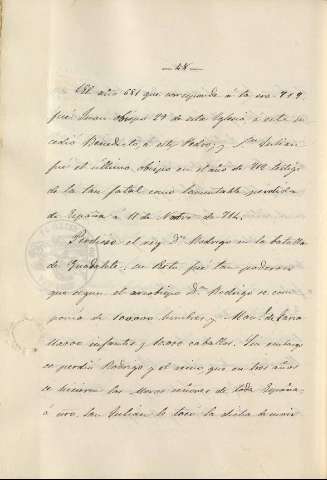 — 28 —
El año 681 que corresponde á la era 719
fué Juan obispo 29 de esta Iglesia á este su
cedió Benedicto, á este Pedro, y Sn. Julian
fué el último obispo en el año de 712 testigo
de la tan fatal como lamentable perdida
de España á 11 de Novbre de 714.
Perdiose el rey Dn. Rodrigo en la batalla
de Guadalete, su flota fué tan poderosa
que segun el arzobispo Dn. Rodrigo se com
ponia de 100000 hombres y
infantes y caballos. Sin embargo
se perdió Rodrigo y el reino que en tres años
se hicieron los Moros señores de toda España,
á San Julian le tocó la dicha de morir